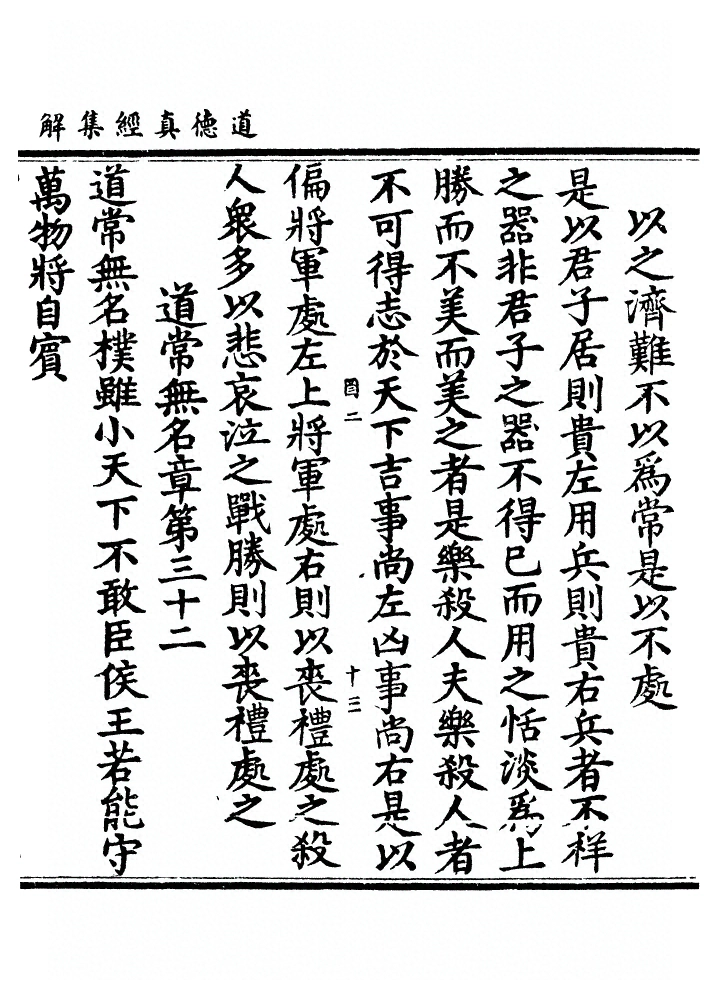 道德真經集解
以之濟難不以為常是以不處
是以君子居則貴左用兵則貴右兵者不祥
之器非君子之器不得已而用之恬淡為上
勝而不美而美之者是樂殺人夫樂殺人者
不可得志於天下吉事尚左凶事尚右是以
酉二 十三
偏將軍處左上將軍處右則以喪禮處之殺
人衆多以悲哀泣之戰勝則以喪禮處之
道常無名章第三十二
道常無名樸雖小天下不敢臣侯王若能守
萬物將自賓